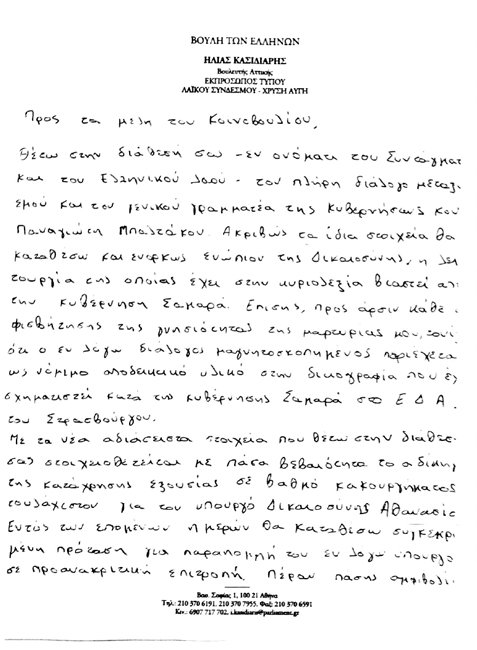 ΒΟΥΛΗ ΤΩΝ ΕΛΛΗΝΩΝ
ΗΛΙΑΣ ΚΑΣΙΔΙΑΡΗΣ
Βουλευτής Αττικής
ΕΚΠΡΟΣΩΠΟΣ ΤΥΠΟΥ
ΛΑΪΚΟΥ ΣΥΝΔΕΣΜΟΥ - ΧΡΥΣΗ ΑΥΓΗ
Προς τα μέλη του Κοινοβουλίου,
Θέτω στην διάθεση σας -εν ονόματι του Συντάγματ
και του Ελληνικού Λαού - τον πλήρη διάλογο μεταξ
εμού και του γενικού γραμματέα της κυβερνήσεως κου
Παναγιώτη Μπαλτάκου. Ακριβώς τα ίδια στοιχεία θα
καταθέσω και ενόρκως ενώπιον της Δικαιοσύνης, η λει
τουργία της οποίας έχει στην κυριολεξία βιαστεί απ
την κυβέρνηση Σαμαρά. Επίσης, προς άρσιν κάθε
φισβήτησης της γνησιότητας της μαρτυρίας μου,
ότι ο εν λόγω διάλογος μαγνητοσκοπημένος παρέχετα
ως νόμιμο αποδεικτικό υλικό στην δικογραφία που έχ
σχηματιστεί κατά της κυβέρνησης Σαμαρά στο Ε Δ Α
του Στρασβούργου.
Με τα νέα αδιάσειστα στοιχεία που θέτω στην διάθεσ
σας στοιχειοθετείται με πάσα βεβαιότητα το αδίκημ
της κατάχρησης εξουσίας σε βαθμό κακουργήματος
τουλάχιστον για τον υπουργό Δικαιοσύνης Αθανάσιο
Εντός των επομένων ημερών θα καταθέσω συγκεκρι
μένη πρόταση για παραπομπή του εν λόγω υπουργο
σε προανακριτική επιτροπή. Πέραν πάσης αμφιβολί
Βασ. Σοφίας 1, 100 21 Αθήνα
Τηλ: 210 370 6191, 210 370 7955, Φαξ: 210 370 6591
Κιν.: 6907 717 702, i.kasidiaris@parliament.gr